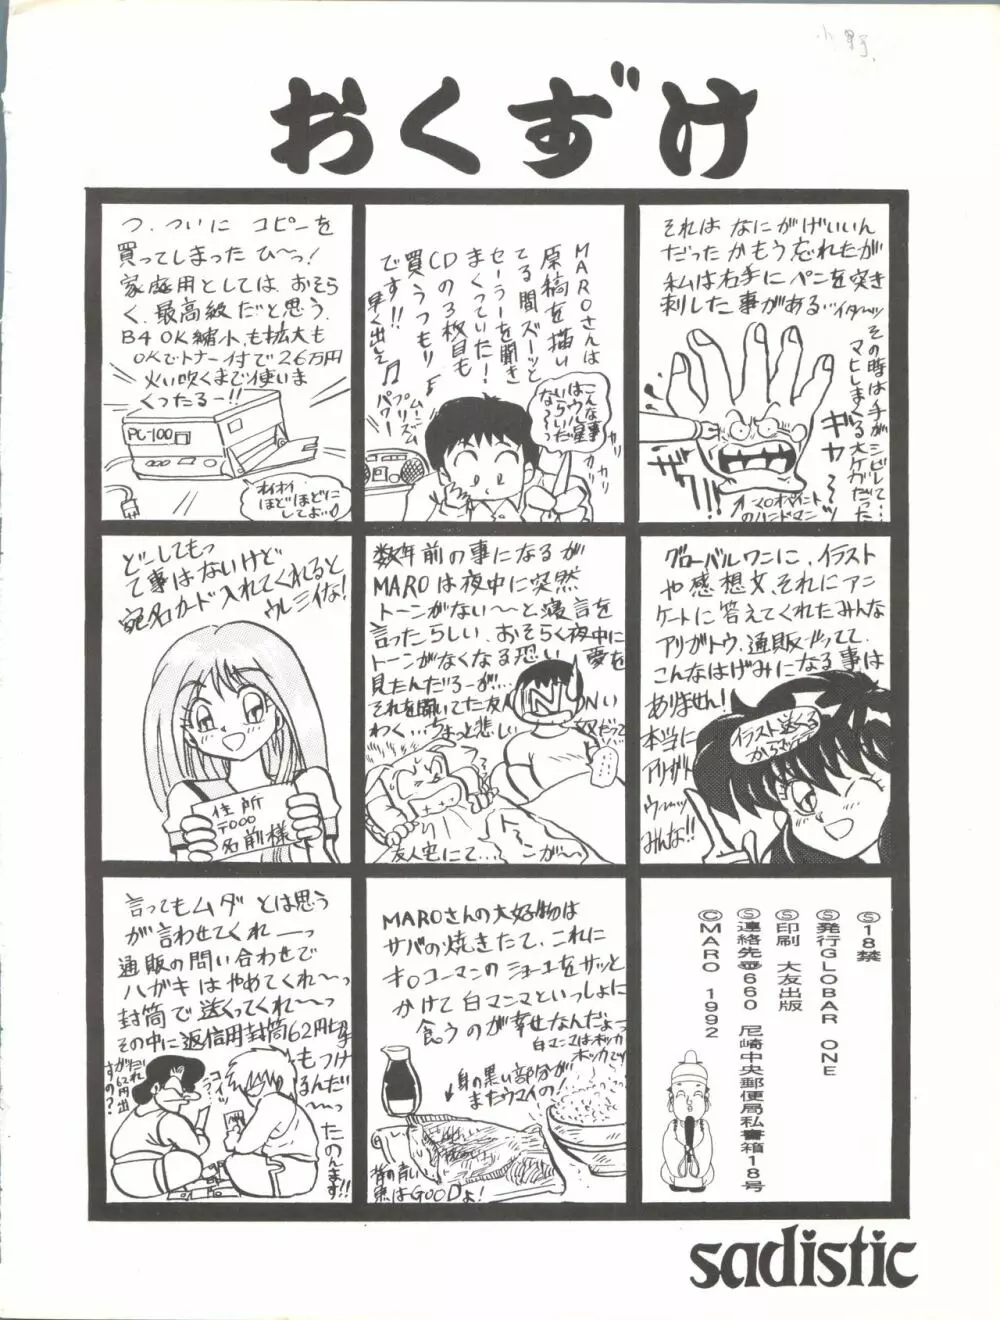 小野
おくずけ
つ、ついに コピーを
買ってしまった ひ〜っ!
家庭用としては、おそら
く、最高級だと思う。
B4 OK縮小も拡大も
OKでトナー付で26万円
火い吹くまで使いま
くったるー!!
PC-100
オイオイ
ほどほどに
してよッ
MAROさんは
原稿を描い
てる間ズーッと
セーラーを聞き
まくっていた!
CDの3枚目も
買うつもり
です!!
早く出え
ムーン
プリズム
パワー
こんな事
はウル星
いらいだ
な〜っ
ガリ
カリ
それは なにがげいいん
だったかもう忘れたが
私は右手にペンを突き
刺した事がある‥イターッ
その時は手がシビレて…
マヒしまくる大ケガだった
ギャァ〜ッ
ザザ!!
マロオポイント
のハンドマン
どーしてもっ
て事はないけど
宛名カード入れてくれると
ウレシイな!
住所
〒000
名前様
数年前の事になるが
MAROは夜中に突然
トーンがない〜と寝言を
言ったらしい、おそらく夜中に
トーンがなくなる恐い夢を
見たんだろーが…
それを聞いてた友人
わく…ちょっと悲しい
奴だって
友人宅にて…
トーンがー
グローバルワンに、イラスト
や感想文、それにアン
ケートに答えてくれたみんな
アリガトウ、通販やってて、
こんなはげみになる事は
ありません!
本当に
アリガト
ウーッ
みんな!!
イラスト送くる
からねッ
言ってもムダ とは思う
が言わせてくれーっ
通販の問い合わせで
ハガキはやめてくれ〜っ
封筒で送くってくれ〜っ
その中に返信用封筒62円切手
もつけ
るんだ
〜っ
たのんます!!
コイツ
だれ
が62円出
すの?
MAROさんの大好物は
サバの焼きたて、これに
キッコーマンのショーユをサッと
かけて白マンマといっしょに
食うのが幸せなんだよーっ
白マンマはホッカ
ホッカでッ
身の黒い部分が
またウマイの!
背の青い
魚はGOODよ!
Ⓢ18禁
Ⓢ発行GLOBAR ONE
Ⓢ印刷 大友出版
Ⓢ連絡先〒660 尼崎中央郵便局私書箱18号
ⒸMARO 1992
sadistic